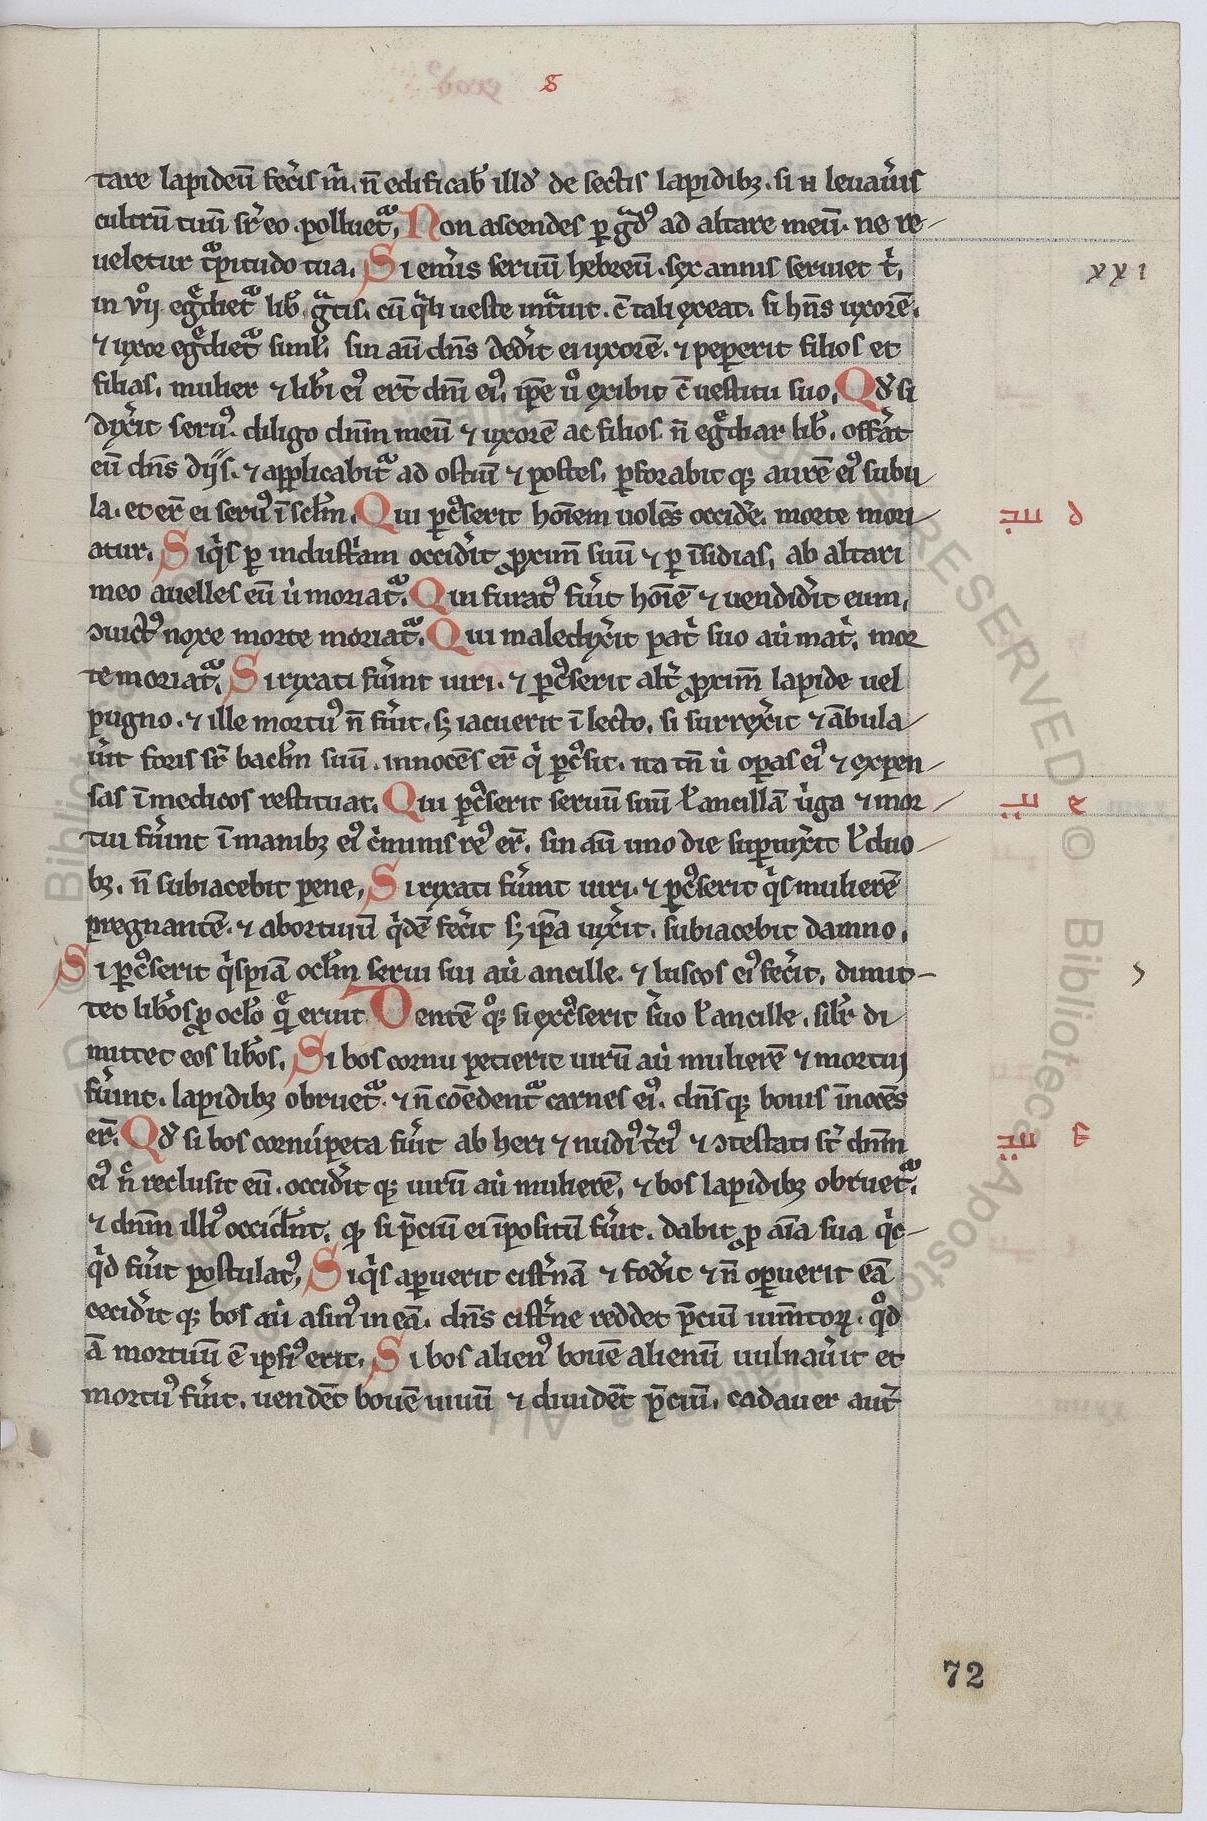 8
tare lapideū fec̓is m̓. n̄ edificab̓ illd̓ de sectis lapidibꝫ. si n̄ leuau̓is
cultrū tuū sr̄ eo. polluetᷓ, Non ascendes ꝑ gᷓdꝰ ad altare meū. ne re
ueletur tᷓpitudo tua. Si em̓is seruū hebreū. sex annis seruiet t̓.
in vͦij egᷓdietᷓ lib̓ gᷓtis. cū qᷓli ueste intᷓuit. c̄ tali exeat. si hn̄s uxorē.
⁊ uxor egᷓdietᷓ simĺ. sin aū dn̄s ded̓it ei uxorē. ⁊ peꝑerit filios et
filias. mulier ⁊ lib̓i eiꝰ er̄t dn̄i eiꝰ, ip̄e ủ exibit c̄ uestitu suo. Qd̓ si
dix̓it seruꝰ. diligo dn̄m meū ⁊ uxorē ac filios. n̄ egᷓdiar lib̓. offᷓat
eū dn̄s dijs. ⁊ applicabitᷓ ad ostiū ⁊ postes. ꝑforabit qꝫ aurē eiꝰ subu
la. et er̄ ei seruꝰ ī secl̓m. Qui ꝑc̓serit hoīem uolēs occid̓e. morte mori
atur. Si qⁱs ꝑ industᷓiam occid̓it ꝓximū suū ⁊ ꝑ īsidias. ab altari
meo auelles eū ut̓ moriatᷓ. Qui furatꝰ fu̓it hoīē ⁊ uendid̓it eum.
ↄuictꝰ noxe morte moriatᷓ. Qui maledix̓it pat̓ suo au̓ mat̓. mor
te moriatᷓ. Si rixati fu̓int uiri. ⁊ ꝑc̓serit alt̓ ꝓximū lapide uel
pugno. ⁊ ille mortuꝰ n̄ fu̓it. sꝫ iacuerit ī lecto. si surrex̓it ⁊ ābula
u̓it foris sr̄ bacl̓m suū. innocēs er̄ qⁱ ꝑc̓sit. ita tn̄ ut̓ oꝑas eiꝰ ⁊ expen
sas ī medicos restituat. Qui ꝑc̓serit seruū suū ł ancillā u̓ga ⁊ mor
tui fu̓int ī manibꝫ eiꝰ c̓minis reꝰ er̄. sin aū uno die suꝑuix̓it ł duo
bꝫ. n̄ subiacebit pene. Si rixati fu̓int uiri. ⁊ ꝑc̓serit qⁱs mulierē
pregnantē. ⁊ abortiuū qⁱdē fec̓it sꝫ ip̄a uix̓it. subiacebit damno.
Si ꝑc̓serit qⁱspiā ocl̓m serui sui au̓ ancille. ⁊ luscos eiꝰ fec̓it. dimit
tet lib̓os ꝓ ocl̓o qᷓ eruit Dentē qꝫ si exc̓serit s̓uo ł ancille. silr̄ di
mittet eos lib̓os. Si bos cornu petierit uirū au̓ mulierē ⁊ mortui
fu̓int. lapidibꝫ obruetᷓ. ⁊ n̄ comēdentᷓ carnes eiꝰ. dn̄s qꝫ bouis īnocēs
er̄. Qd̓ si bos cornupeta fu̓it ab heri ⁊ nudiꝰ t̓ciꝰ ⁊ ↄtestati st̄ dnm̄
eiꝰ n̄ reclusit eū. occid̓it qꝫ uirū au̓ mulierē. ⁊ bos lapidibꝫ obruetᷓ.
⁊ dnm̄ illiꝰ occid̓nt. qꝫ si p̄ciū ei īpositū fu̓it. dabit ꝓ aīa sua qⁱc
qⁱd fu̓it postulatꝰ, Si qⁱs aꝑuerit cist̓nā ⁊ fod̓it ⁊ n̄ oꝑuerit eā
cecid̓it qꝫ bos au̓ asinꝰ in eā. dn̄s cist̓ne reddet p̄ciū iumtoꝝ. qͦd
ā mortuū ē ipsiꝰ erit. Si bos alienꝰ bouē alienū uulnau̓it et
mortuꝰ fu̓it. uendēt bouē uiuū ⁊ diuidēt p̄ciū. cadauer aut̄
xxi
72